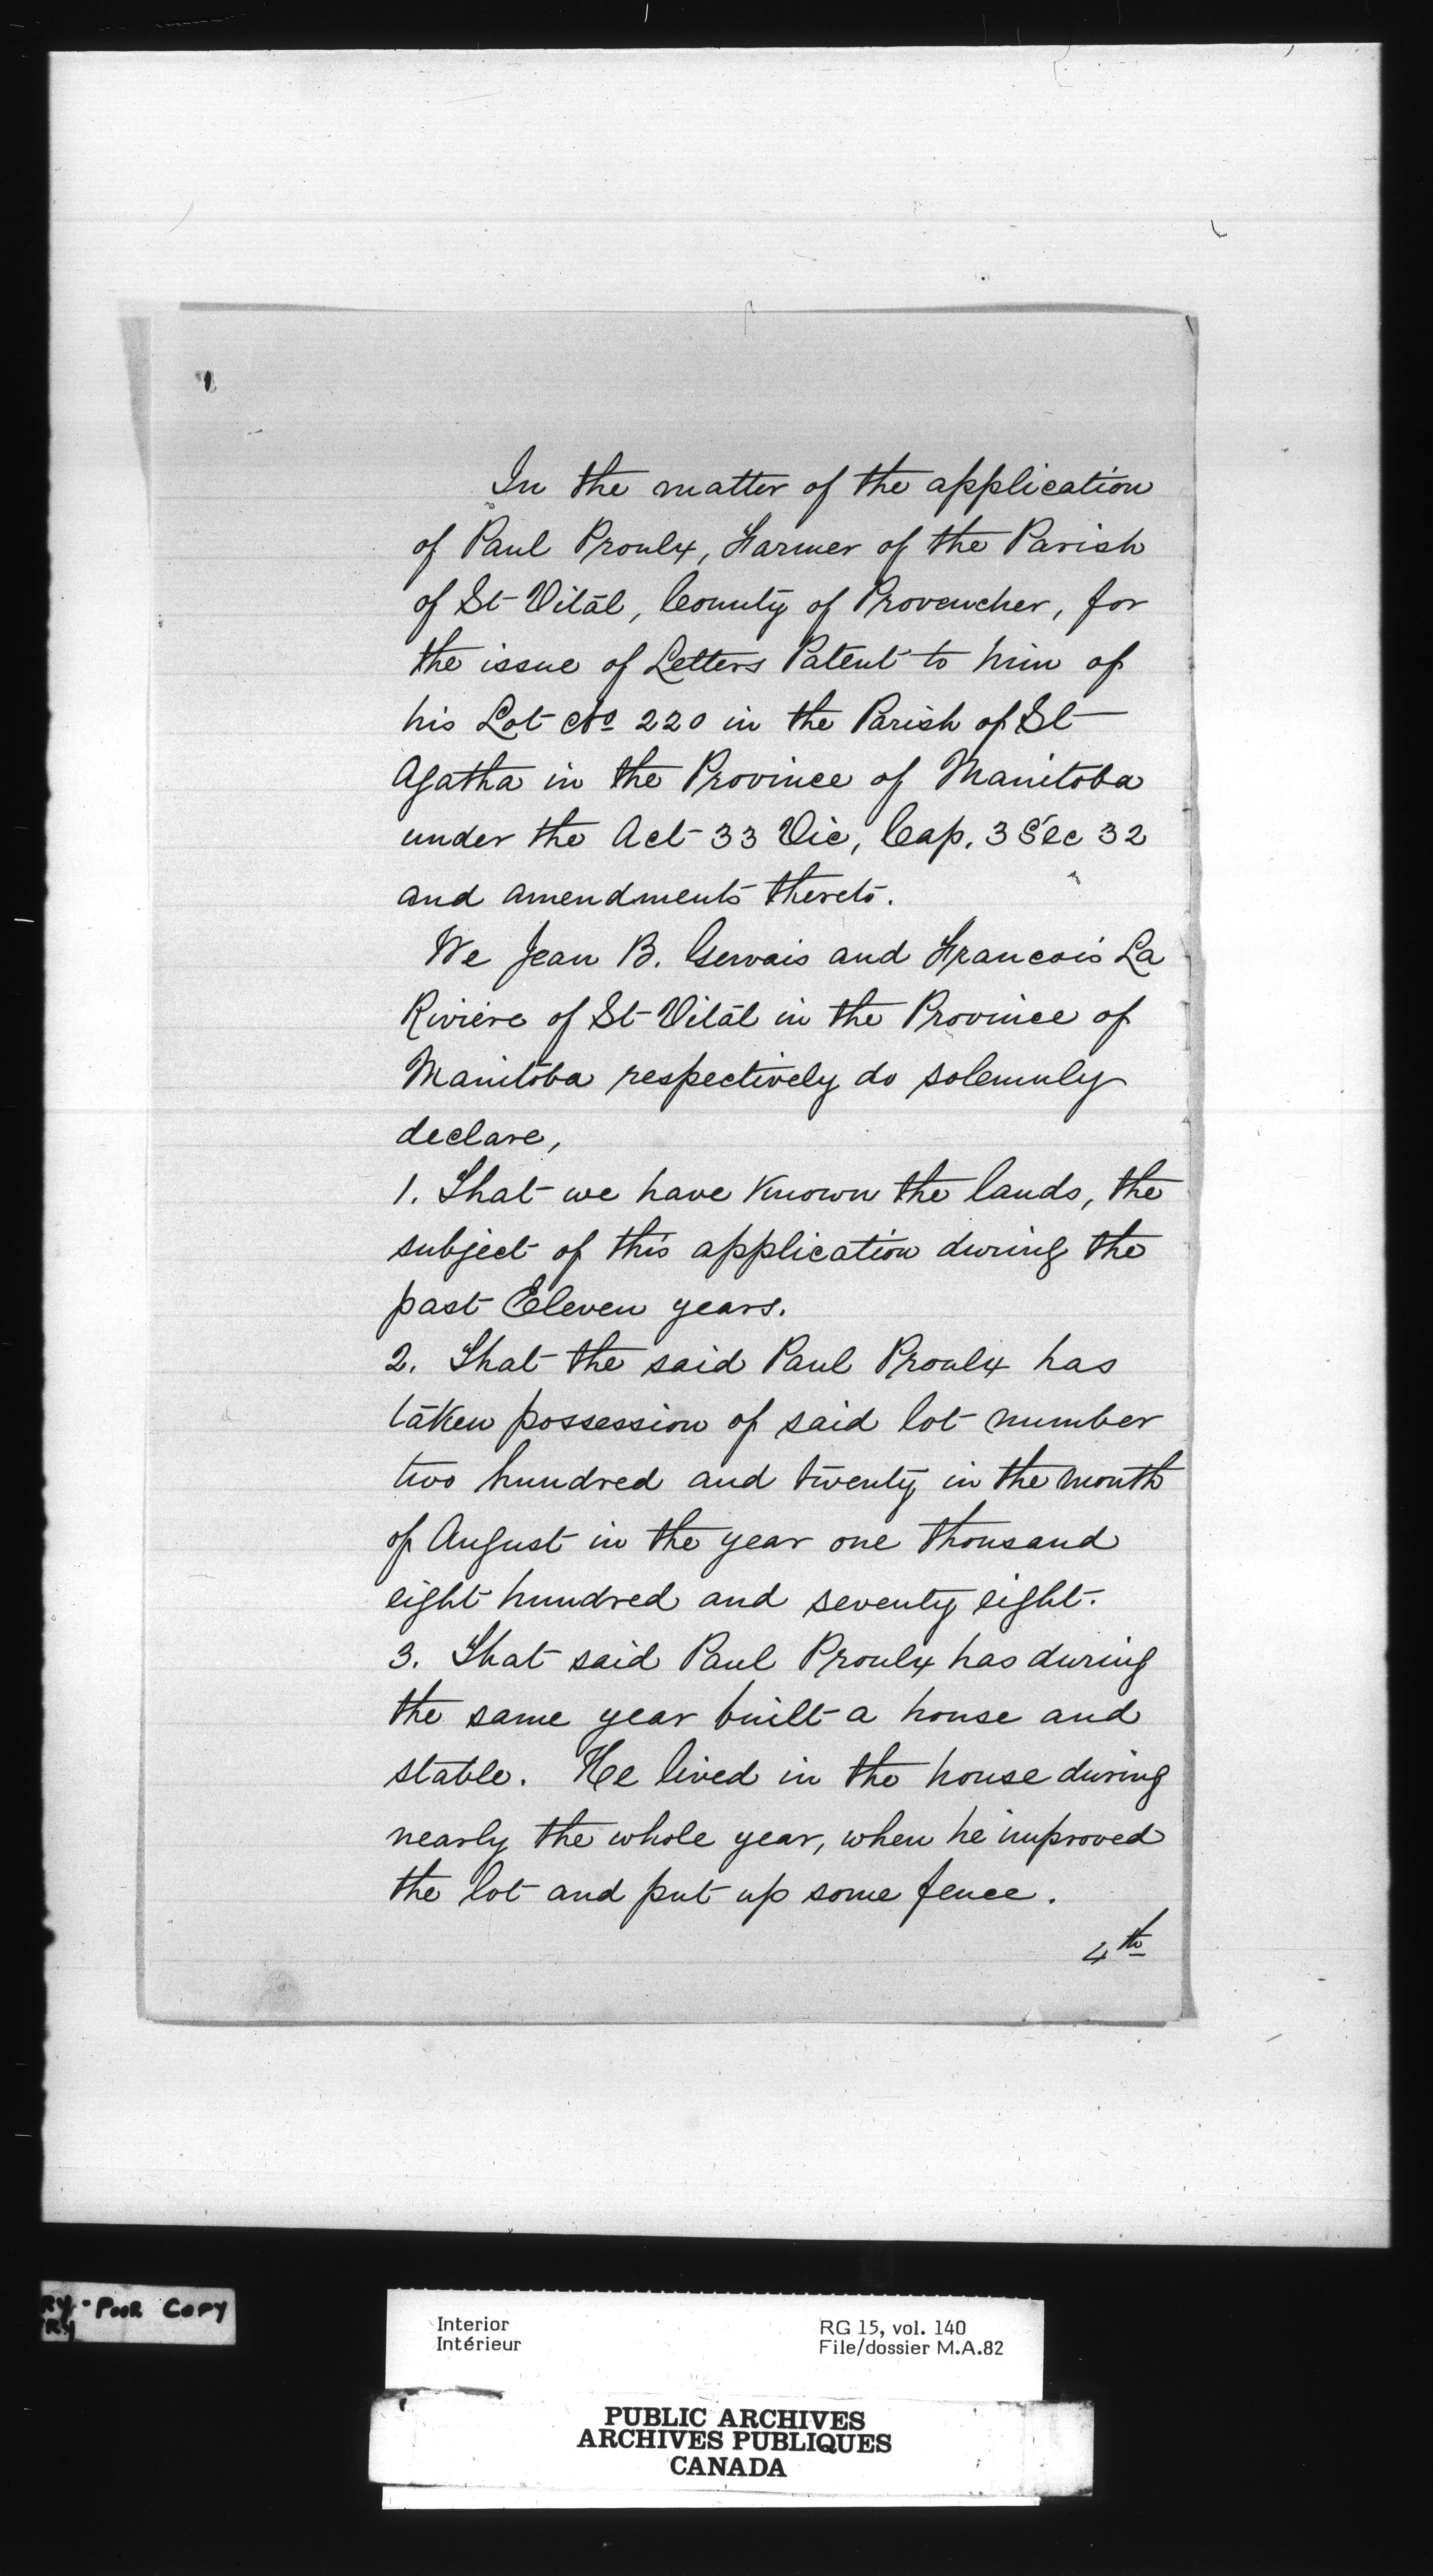 In the matter of the application
of Paul Proulx, Farmer of the Parish
of St Vital, County of Provencher, for
the issue of Letters Patent to him of
his Lot No 220 in the Parish of St
Agatha in the Province of Manitoba
under the Act 33 Vic, Cap. 3 Sec 32
and amendments thereto.
We Jean B. Gervais and Francois La
Riviere of St Vital in the Province of
Manitoba respectively do solemnly
declare,
1. That we have known the lands, the
subject of this application during the
past Eleven years.
2. That the said Paul Proulx has
taken possession of said lot number
two hundred and twenty in the month
of August in the year one thousand
eight hundred and seventy eight.
3. That said Paul Proulx has during
the same year built a house and
stable. He lived in the house during
nearly the whole year, when he improved
the lot and put up some fence.
4th
RY - POOR COPY
RY
Interior
Intérieur
RG 15, vol. 140
File/dossier M.A.82
PUBLIC ARCHIVES
ARCHIVES PUBLIQUES
CANADA